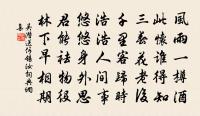 風雨一樽酒
此懷誰得知
三春花老後
千里客歸時
浩浩人間事
悠悠身外思
君能祛物役
林下早相期
吳潛送何錫汝